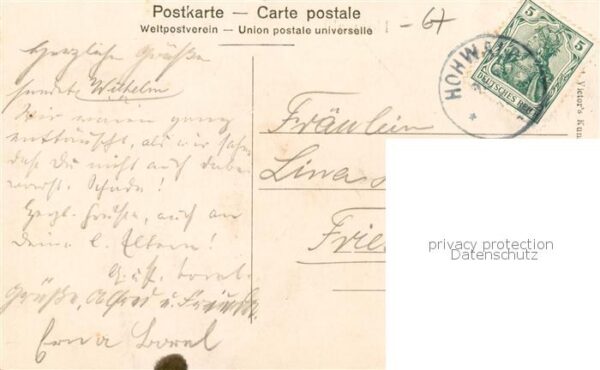 Postkarte — Carte postale
Weltpostverein — Union postale universelle
5 5
DEUTSCHES REICH
HOHWALD
Victor's Kun
Herzliche Grüße
sendet Wilhelm
Wir waren ganz
enttäuscht, als wir sahen
daß Du nicht auch dabei
warst. Schade!
Herzl. Grüße, auch an
deine l. Eltern!
Grüße, Alfred u.
Erna
Fräulein
Lina
Frie
privacy protection
Datenschutz